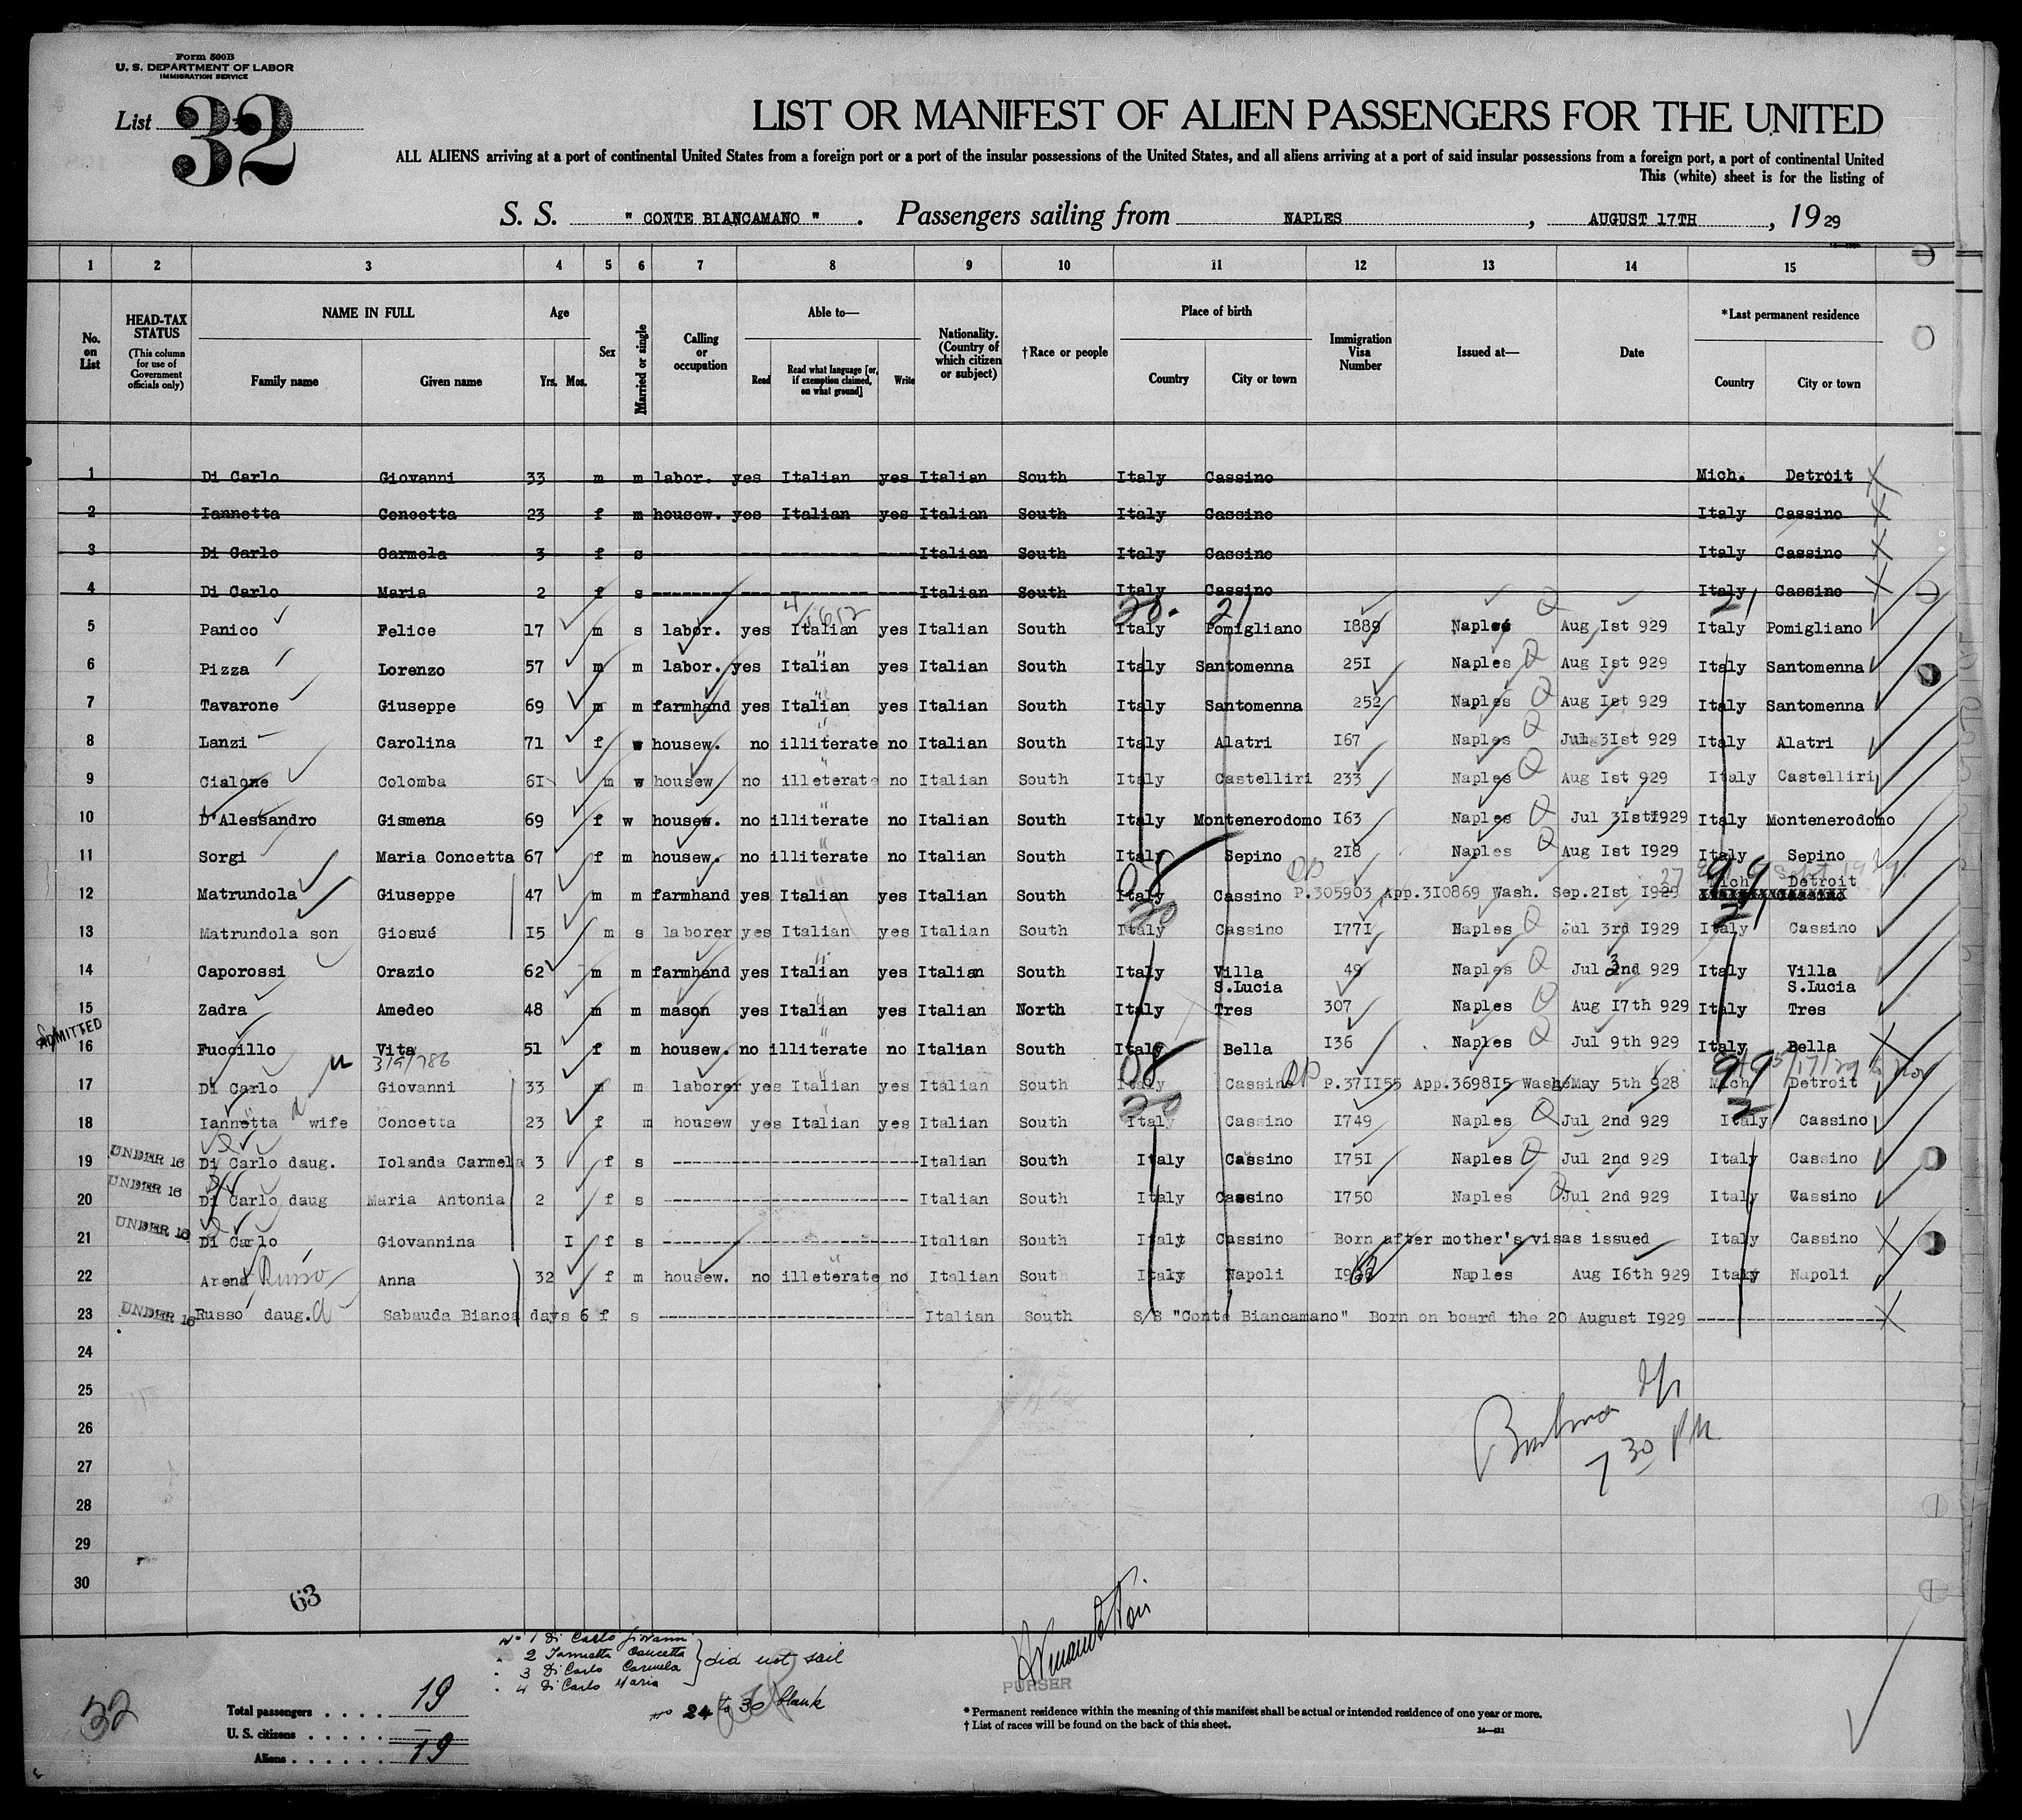 Form 500B
U. S. DEPARTMENT OF LABOR
IMMIGRATION SERVICE
List 32
LIST OR MANIFEST OF ALIEN PASSENGERS FOR THE UNITED
ALL ALIENS arriving at a port of continental United States from a foreign port or a port of the insular possessions of the United States, and all aliens arriving at a port of said insular possessions from a foreign port, a port of continental United
This (white) sheet is for the listing of
S. S. " CONTE BIANCAMANO " . Passengers sailing from NAPLES , AUGUST 17TH , 19 29
1 2 3 4 5 6 7 8 9 10 11 12 13 14 15
No. on List
HEAD-TAX STATUS (This column for use of Government officials only)
NAME IN FULL Family name Given name
Age Yrs. Mos.
Sex
Married or single
Calling or occupation
Able to— Read Read what language [or, if exemption claimed, on what ground] Write
Nationality. (Country of which citizen or subject)
†Race or people
Place of birth Country City or town
Immigration Visa Number
Issued at—
Date
*Last permanent residence Country City or town
1 Di Carlo Giovanni 33 m m labor. yes Italian yes Italian South Italy Cassino Mich. Detroit X
2 Iannetta Concetta 23 f m housew. yes Italian yes Italian South Italy Cassino Italy Cassino X
3 Di Carlo Carmela 3 f s Italian South Italy Cassino Italy Cassino X
4 Di Carlo Maria 2 f s Italian South Italy Cassino Italy Cassino X
5 Panico Felice 17 m s labor. yes Italian yes Italian South Italy Pomigliano 1889 Naples Aug Ist 929 Italy Pomigliano
6 Pizza Lorenzo 57 m m labor. yes Italian yes Italian South Italy Santomenna 25I Naples Aug Ist 929 Italy Santomenna
7 Tavarone Giuseppe 69 m m farmhand yes Italian yes Italian South Italy Santomenna 252 Naples Aug Ist 929 Italy Santomenna
8 Lanzi Carolina 71 f w housew. no illiterate no Italian South Italy Alatri I67 Naples Jul 3Ist 929 Italy Alatri
9 Cialone Colomba 6I m w housew no illeterate no Italian South Italy Castelliri 233 Naples Aug Ist 929 Italy Castelliri
10 D'Alessandro Gismena 69 f w housew. no illiterate no Italian South Italy Montenerodomo I63 Naples Jul 3Ist I929 Italy Montenerodomo
11 Sorgi Maria Concetta 67 f m housew. no illiterate no Italian South Italy Sepino 2I8 Naples Aug Ist I929 Italy Sepino
12 Matrundola Giuseppe 47 m m farmhand yes Italian yes Italian South Italy Cassino P.305903 App.3I0869 Wash. Sep.2Ist I929 Mich Detroit
13 Matrundola son Giosué I5 m s laborer yes Italian yes Italian South Italy Cassino I77I Naples Jul 3rd I929 Italy Cassino
14 Caporossi Orazio 62 m m farmhand yes Italian yes Italian South Italy Villa S.Lucia 49 Naples Jul 2nd 929 Italy Villa S.Lucia
15 Zadra Amedeo 48 m m mason yes Italian yes Italian North Italy Tres 307 Naples Aug I7th 929 Italy Tres
ADMITTED
16 Fuccillo Vita 51 f m housew. no illiterate no Italian South Italy Bella I36 Naples Jul 9th 929 Italy Bella X
17 Di Carlo Giovanni 33 m m laborer yes Italian yes Italian South Italy Cassino P.37II55 App.3698I5 Wash. May 5th 928 Mich Detroit
18 Iannetta wife Concetta 23 f m housew yes Italian yes Italian South Italy Cassino I749 Naples Jul 2nd 929 Italy Cassino
UNDER 16 19 Di Carlo daug. Iolanda Carmela 3 f s Italian South Italy Cassino I75I Naples Jul 2nd 929 Italy Cassino
UNDER 16 20 Di Carlo daug Maria Antonia 2 f s Italian South Italy Cassino I750 Naples Jul 2nd 929 Italy Cassino
UNDER 16 21 Di Carlo Giovannina I f s Italian South Italy Cassino Born after mother's visas issued Italy Cassino X
22 Arena Russo Anna 32 f m housew. no illeterate no Italian South Italy Napoli Naples Aug I6th 929 Italy Napoli
UNDER 16 23 Russo daug. Sabauda Bianca days 6 f s Italian South S/S "Conte Biancamano" Born on board the 20 August I929 X
24
25
26
27
28
29
30
7 30 PM
63
No 1 Di Carlo Giovanni
" 2 Iannetta Concetta
" 3 Di Carlo Carmela
" 4 Di Carlo Maria
did not sail
no 24 to 30 blank
PURSER
32
Total passengers . . . . 19
U. S. citizens . . . . . —
Aliens . . . . . . 19
* Permanent residence within the meaning of this manifest shall be actual or intended residence of one year or more.
† List of races will be found on the back of this sheet.